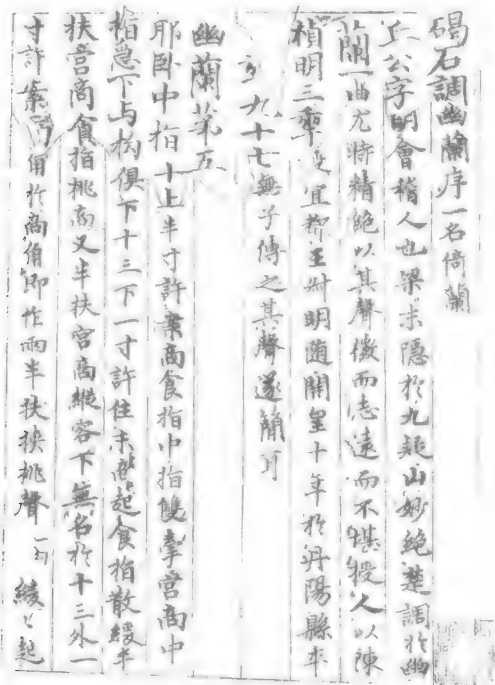 碣石調幽蘭序一名倚蘭
丘公字明會稽人也梁末隱於九疑山妙絕楚調於幽
蘭一曲尤特精絕以其聲微而志遠而不堪授人以陳
楨明三年授宜都王叔明隨開皇十年於丹陽縣卒
九十七無子傳之其聲遂簡耳
幽蘭第五
耶臥中指十上半寸許案商食指中指雙牽宮商中
指急下与拘俱下十三下一寸許住末商起食指散緩半
扶宮商食指挑商又半扶宮商縱容下無名於十三外一
寸許案商角於商角即作兩半扶挾挑聲一句緩〻起